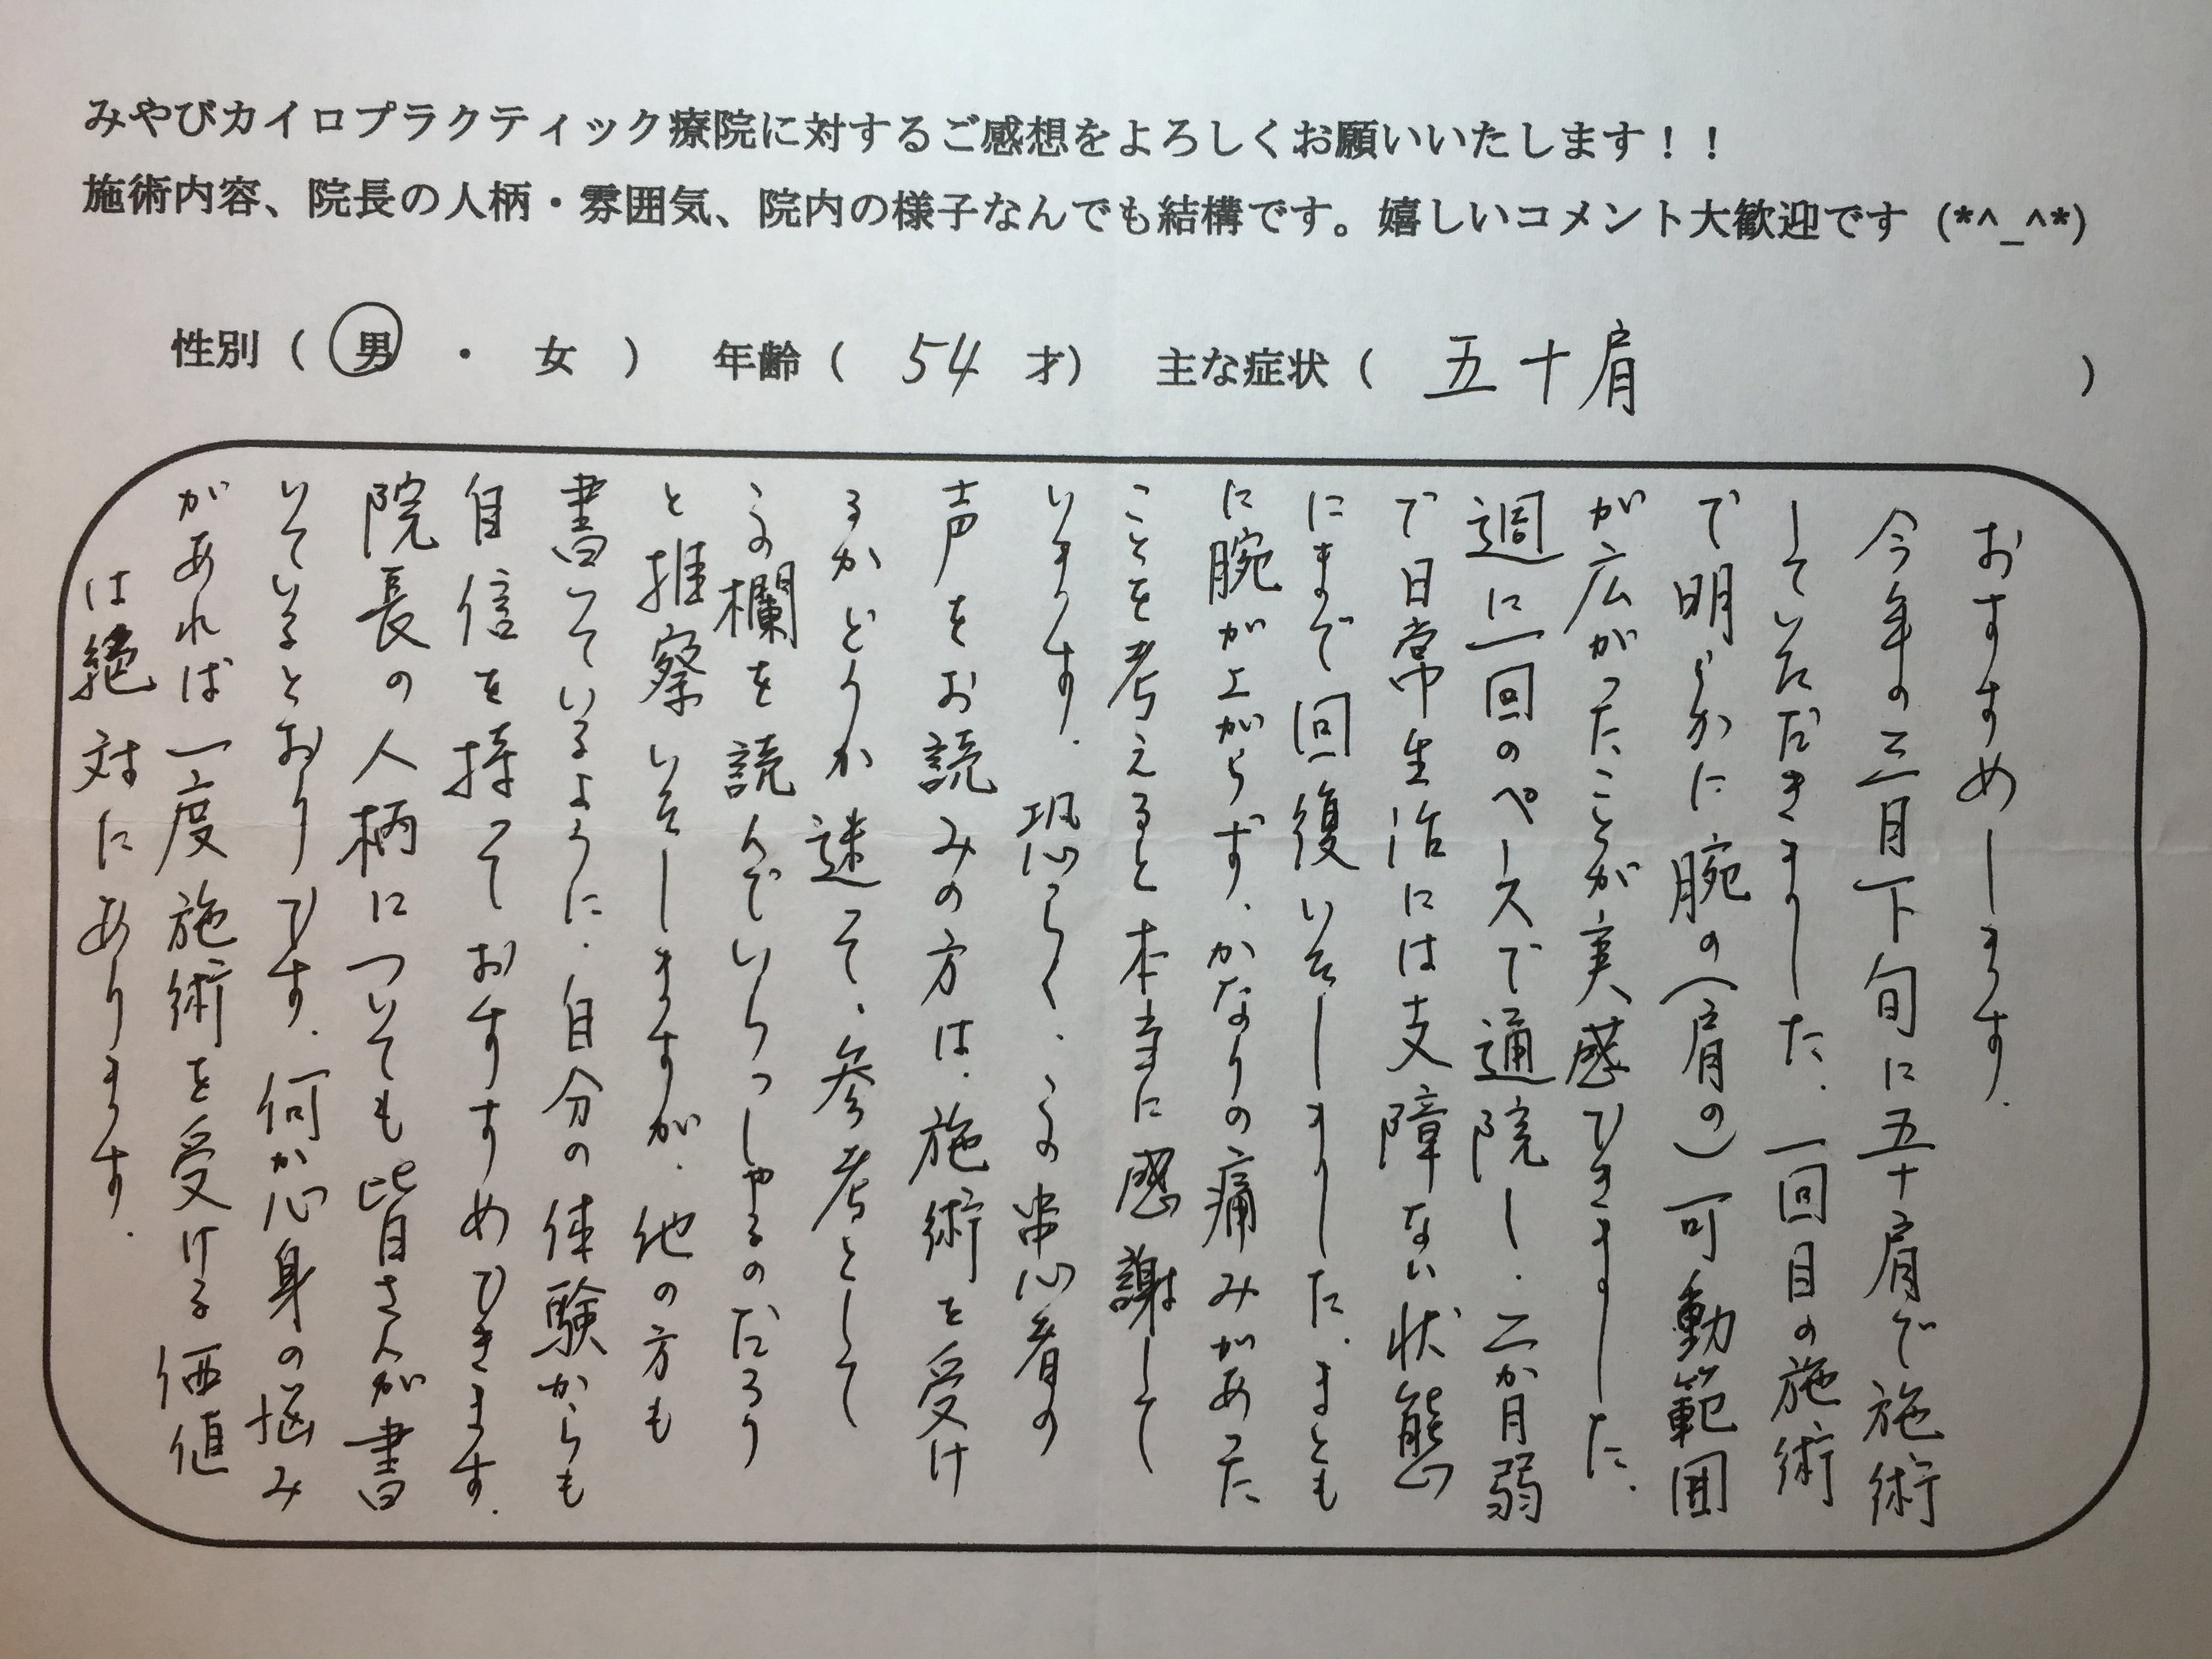 みやびカイロプラクティック療院に対するご感想をよろしくお願いいたします！！
施術内容、院長の人柄・雰囲気、院内の様子なんでも結構です。嬉しいコメント大歓迎です (*^_^*)
性別（ 男 ・ 女 ） 年齢（ 54 才） 主な症状（ 五十肩 ）
おすすめします。
今年の三月下旬に五十肩で施術
していただきました。一回目の施術
で明らかに腕の（肩の）可動範囲
が広がったことが実感できました。
週に一回のペースで通院し、二か月弱
で日常生活には支障ない状態
にまで回復いたしました。まとも
に腕が上がらず、かなりの痛みがあった
ことを考えると本当に感謝して
います。恐らく、この患者の
声をお読みの方は、施術を受け
るかどうか迷って、参考として
この欄を読んでいらっしゃるのだろう
と推察いたしますが、他の方も
書いているように、自分の体験からも
自信を持っておすすめできます。
院長の人柄についても皆さんが書
いているとおりです。何か心身の悩み
があれば一度施術を受ける価値
は絶対にあります。